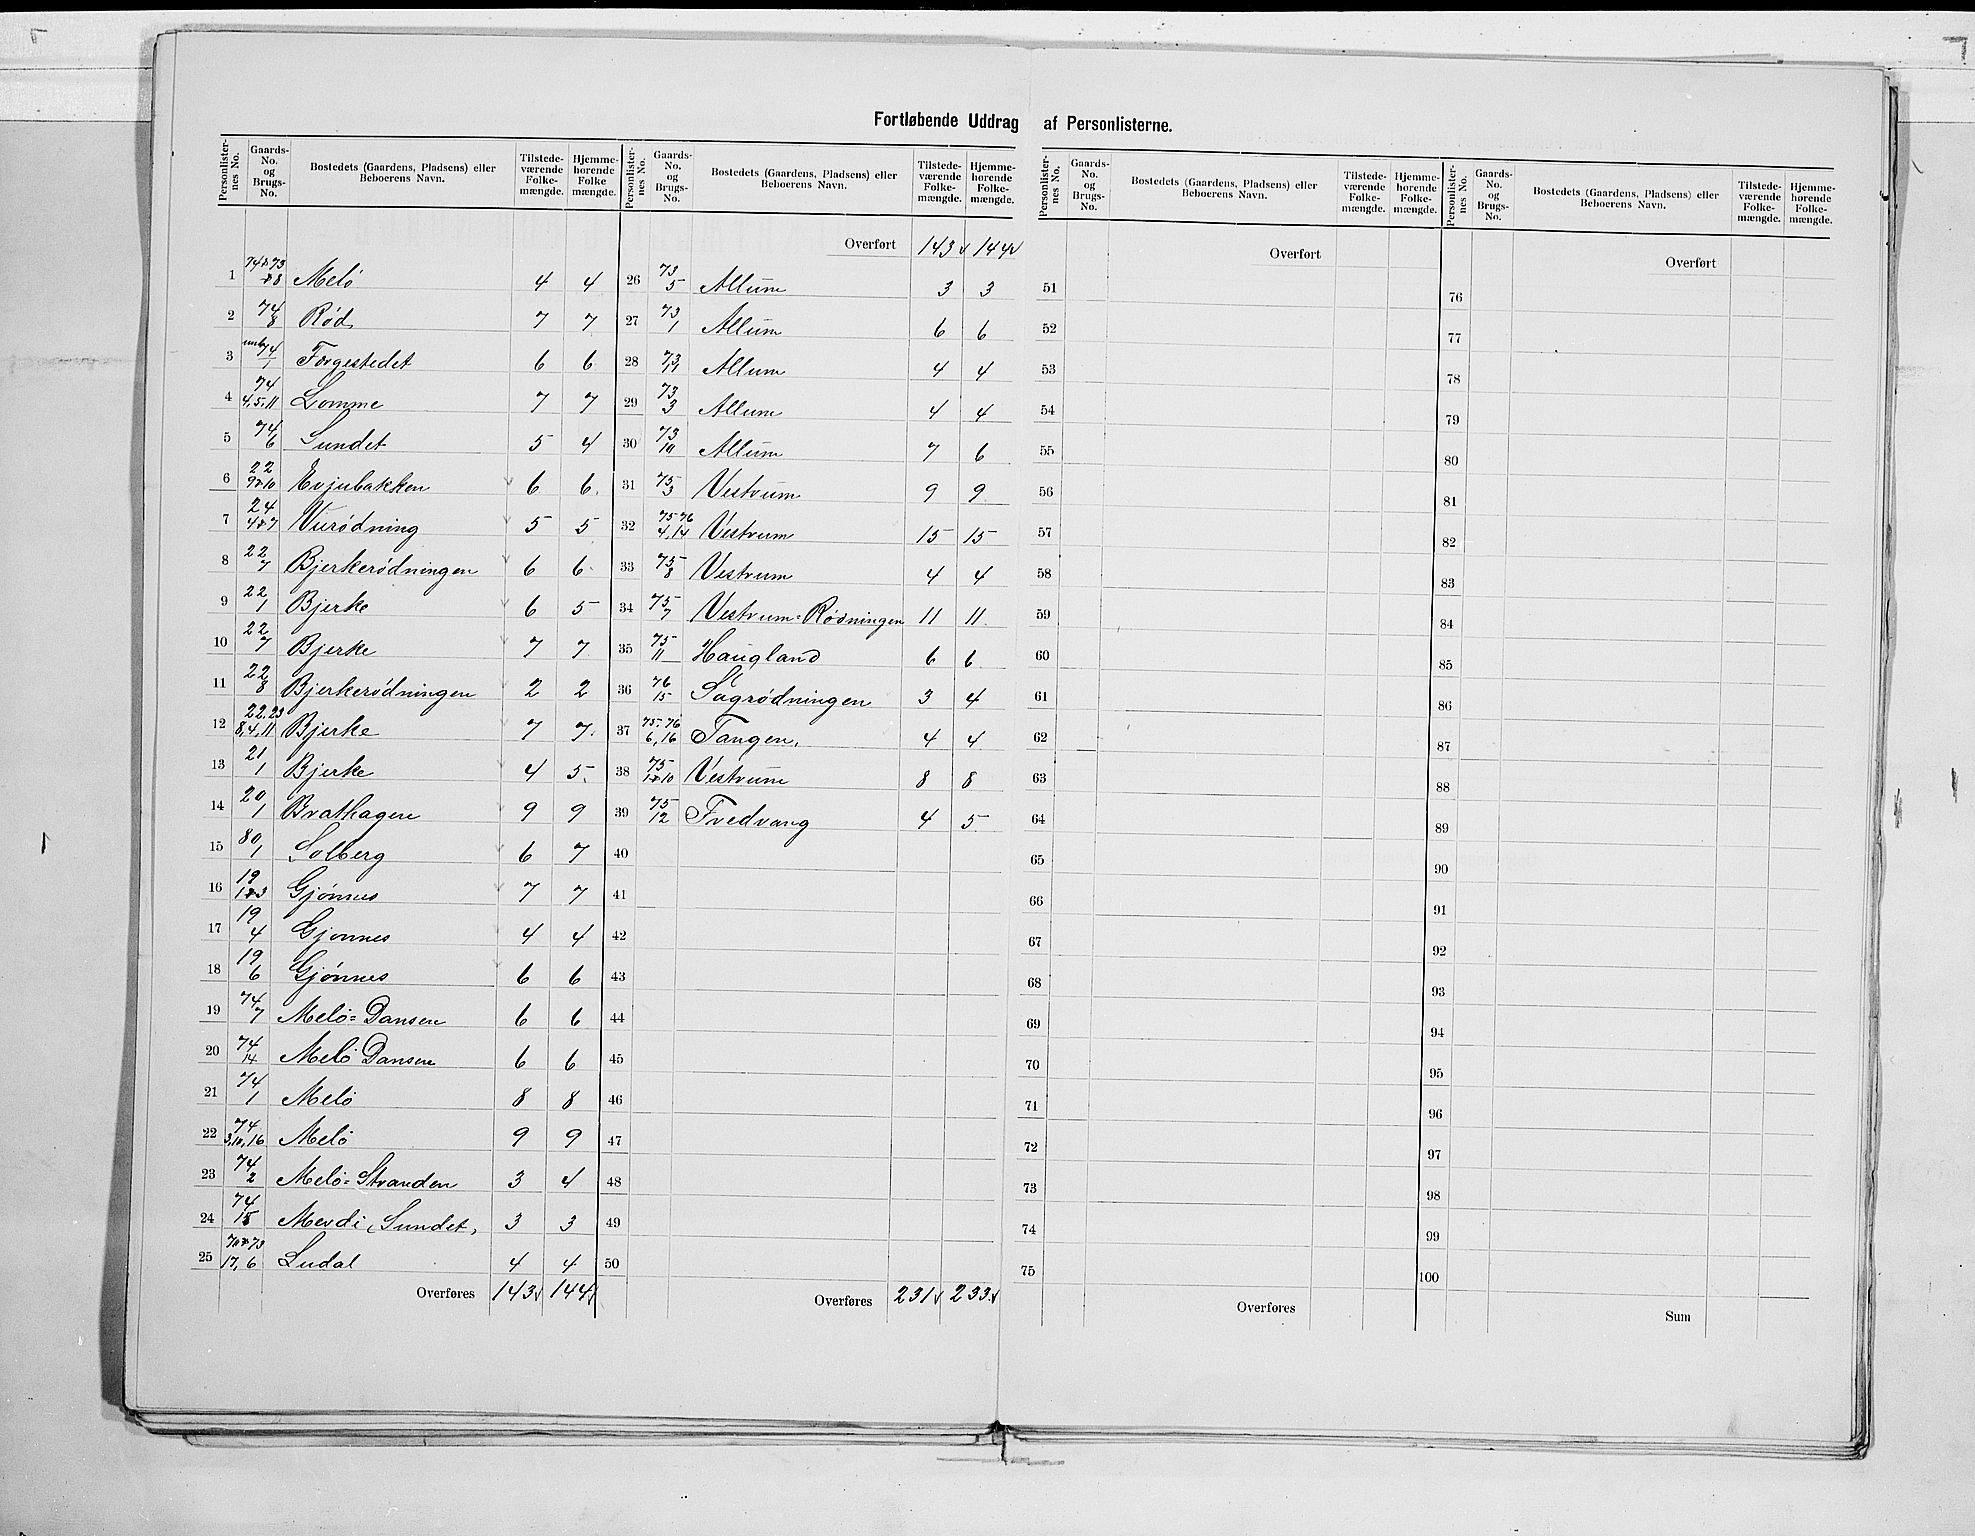 Fortløbende Uddrag af Personlisterne.
Personlisternes No. | Gaards-No. og Brugs-No. | Bostedets (Gaardens, Pladsens) eller Beboerens Navn. | Tilstedeværende Folkemængde. | Hjemmehørende Folkemængde.
1 | 74 & 73 / & 8 | Melö | 4 | 4
2 | 74 / 8 | Rød | 7 | 7
3 | 74 / 1 | Forgestedet | 6 | 6
4 | 74 / 4, 5, 11 | Lomme | 7 | 7
5 | 74 / 6 | Sundet | 5 | 4
6 | 22 / 9 & 10 | Evjubakken | 6 | 6
7 | 24 / 4 & 7 | Vurödning | 5 | 5
8 | 22 / 7 | Bjerkerödningen | 6 | 6
9 | 22 / 1 | Bjerke | 6 | 5
10 | 22 / 7 | Bjerke | 7 | 7
11 | 22 / 8 | Bjerkerödningen | 2 | 2
12 | 22, 23 / 8, 4, 11 | Bjerke | 7 | 7
13 | 21 / 1 | Bjerke | 4 | 5
14 | 20 / 1 | Brathagen | 9 | 9
15 | 80 / 1 | Solberg | 6 | 7
16 | 19 / 1 & 3 | Gjönnes | 7 | 7
17 | 19 / 4 | Gjonnes | 4 | 4
18 | 19 / 6 | Gjönnes | 6 | 6
19 | 74 / 7 | Melö=Dansen | 6 | 6
20 | 74 / 14 | Melö Dansen | 6 | 6
21 | 74 / 1 | Melö | 8 | 8
22 | 74 / 3, 10, 16 | Melö | 9 | 9
23 | 74 / 2 | Melö=Stranden | 3 | 4
24 | 74 / 15 | Merdi, Sundet, | 3 | 3
25 | & 73 / 17, 6 | Ludal | 4 | 4
Overføres | 143 | 144
Personlisternes No. | Gaards-No. og Brugs-No. | Bostedets (Gaardens, Pladsens) eller Beboerens Navn. | Tilstedeværende Folkemængde. | Hjemmehørende Folkemængde.
Overført | 143 | 144
26 | 73 / 5 | Allum | 3 | 3
27 | 73 / 1 | Allum | 6 | 6
28 | 73 | Allum | 4 | 4
29 | 73 / 3 | Allum | 4 | 4
30 | 73 / 10 | Allum | 7 | 6
31 | 75 / 3 | Vestrum | 9 | 9
32 | 75 76 / 4, 14 | Vestrum | 15 | 15
33 | 75 / 8 | Vestrum | 4 | 4
34 | 75 / 7 | Vestrum=Rödningen | 11 | 11
35 | 75 / 11 | Haugland | 6 | 6
36 | 76 / 15 | Sagrödningen | 3 | 4
37 | 75, 76 / 6, 16 | Tangen, | 4 | 4
38 | 75 / 1 & 10 | Vestrum | 8 | 8
39 | 75 / 12 | Fredvang | 4 | 5
40
41
42
43
44
45
46
47
48
49
50
Overføres | 231 | 233
Personlisternes No. | Gaards-No. og Brugs-No. | Bostedets (Gaardens, Pladsens) eller Beboerens Navn. | Tilstedeværende Folkemængde. | Hjemmehørende Folkemængde.
Overført
51
52
53
54
55
56
57
58
59
60
61
62
63
64
65
66
67
68
69
70
71
72
73
74
75
Overføres
Personlisternes No. | Gaards-No. og Brugs-No. | Bostedets (Gaardens, Pladsens) eller Beboerens Navn. | Tilstedeværende Folkemængde. | Hjemmehørende Folkemængde.
Overført
76
77
78
79
80
81
82
83
84
85
86
87
88
89
90
91
92
93
94
95
96
97
98
99
100
Sum